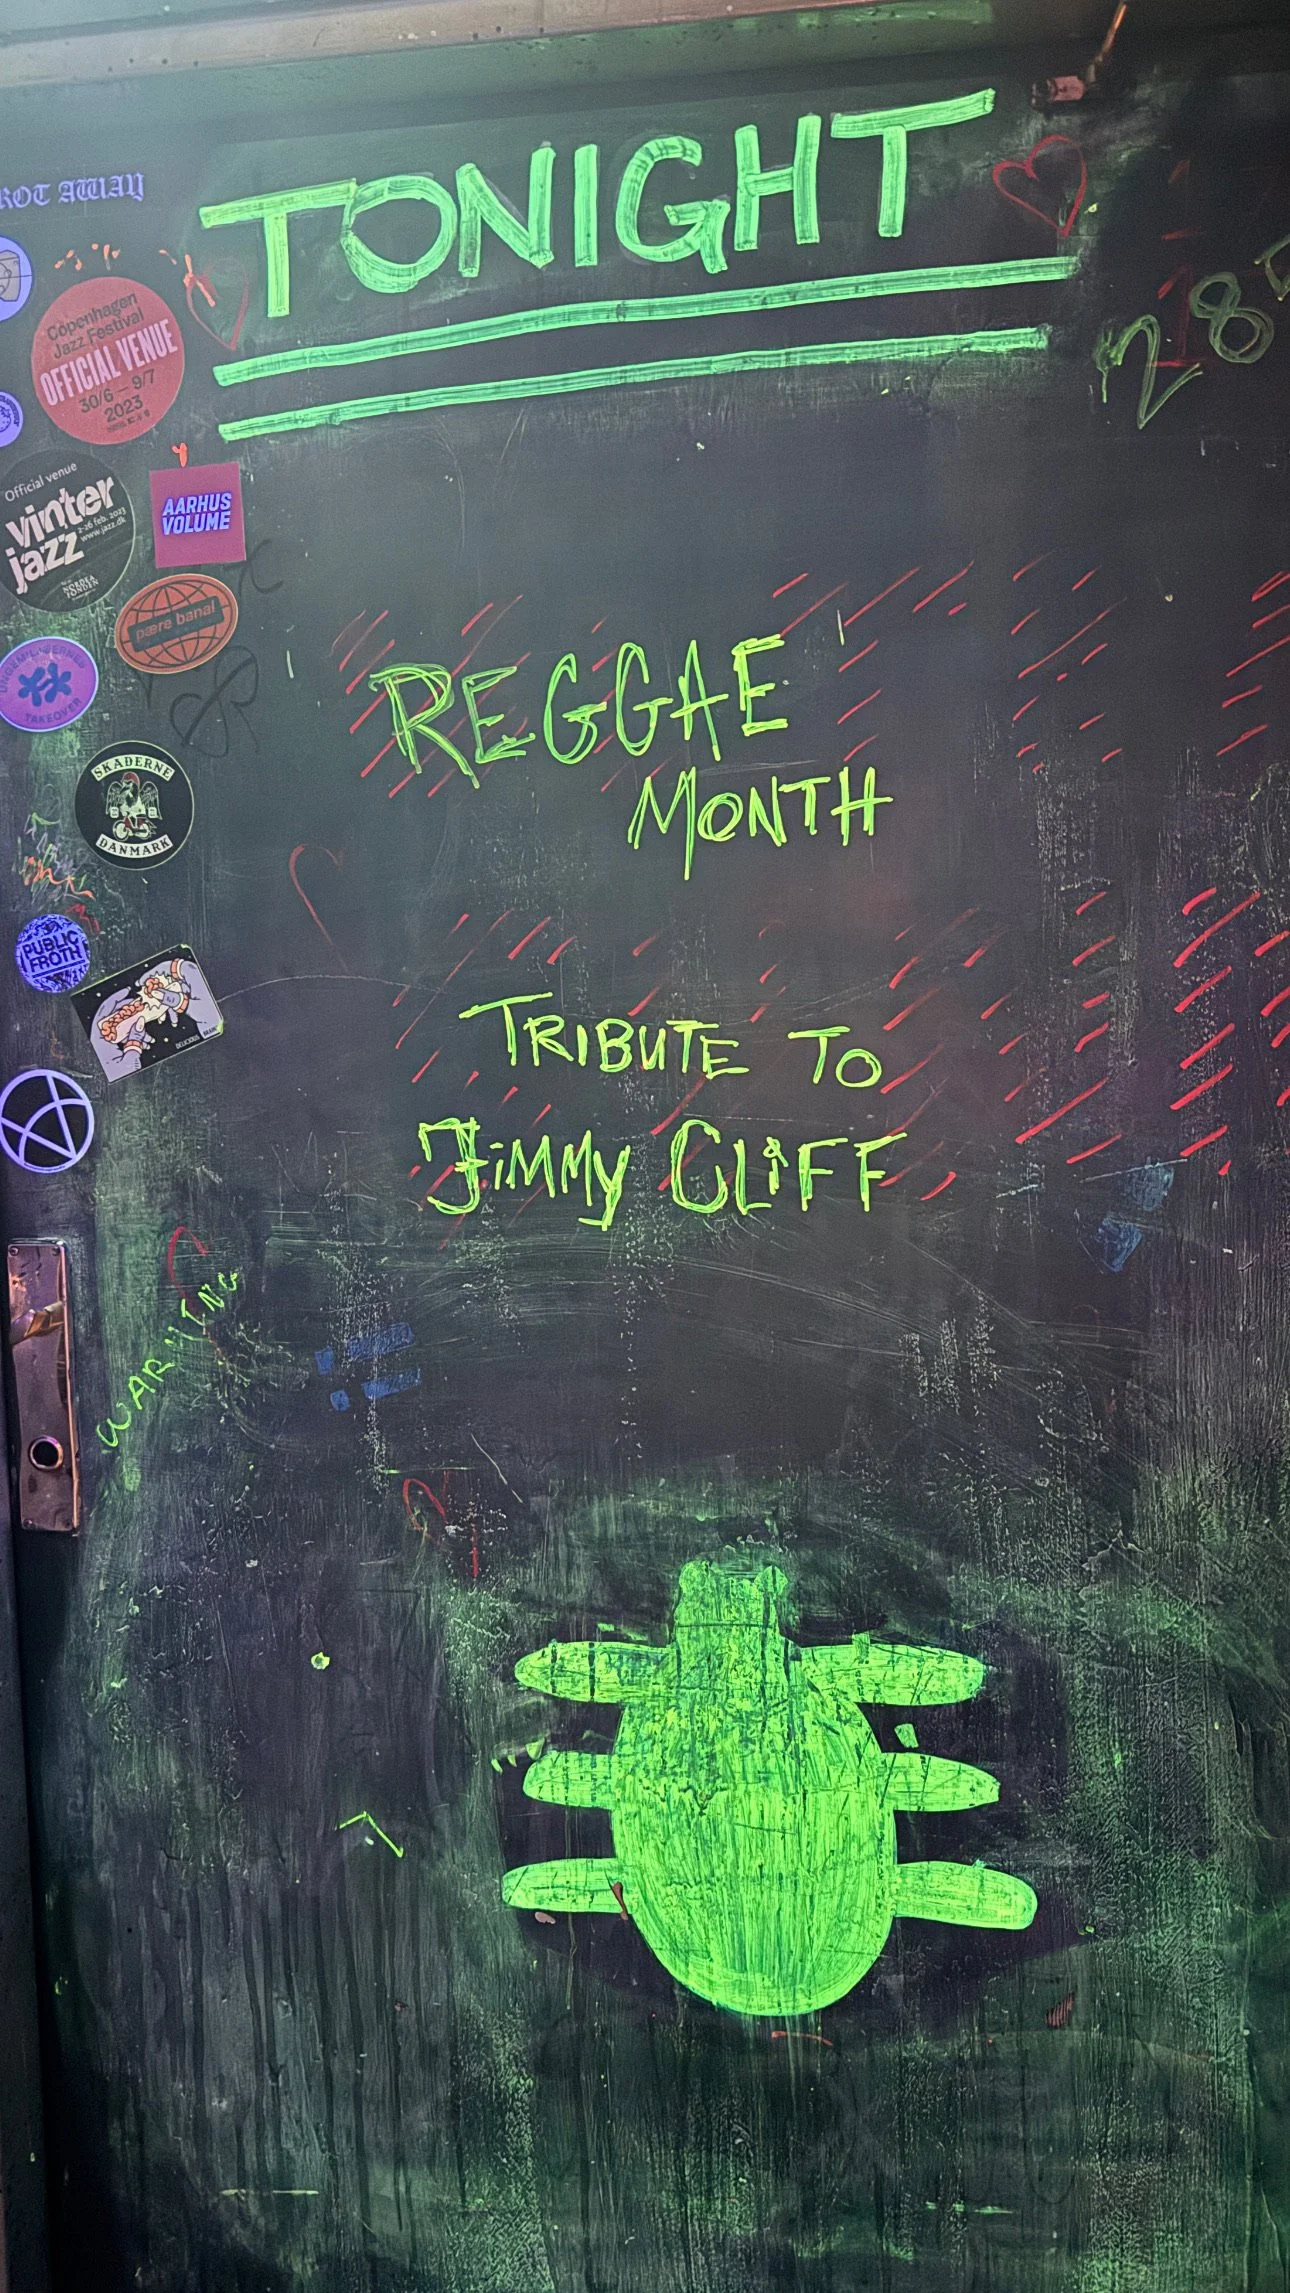 TONIGHT
ROT AWAY
285
Copenhagen
Jazz Festival
OFFICIAL VENUE
30/6 — 9/7
2023
Official venue
vinter
jazz
2-26 feb. 2023
www.jazz.dk
NORDEA
FONDEN
AARHUS
VOLUME
pære banal
TAKEOVER
REGGAE
MONTH
SKADERNE
DANMARK
PUBLIC
FROTH
DELICIOUS BRAIN
TRIBUTE TO
JiMMy CLiFF
WARNING